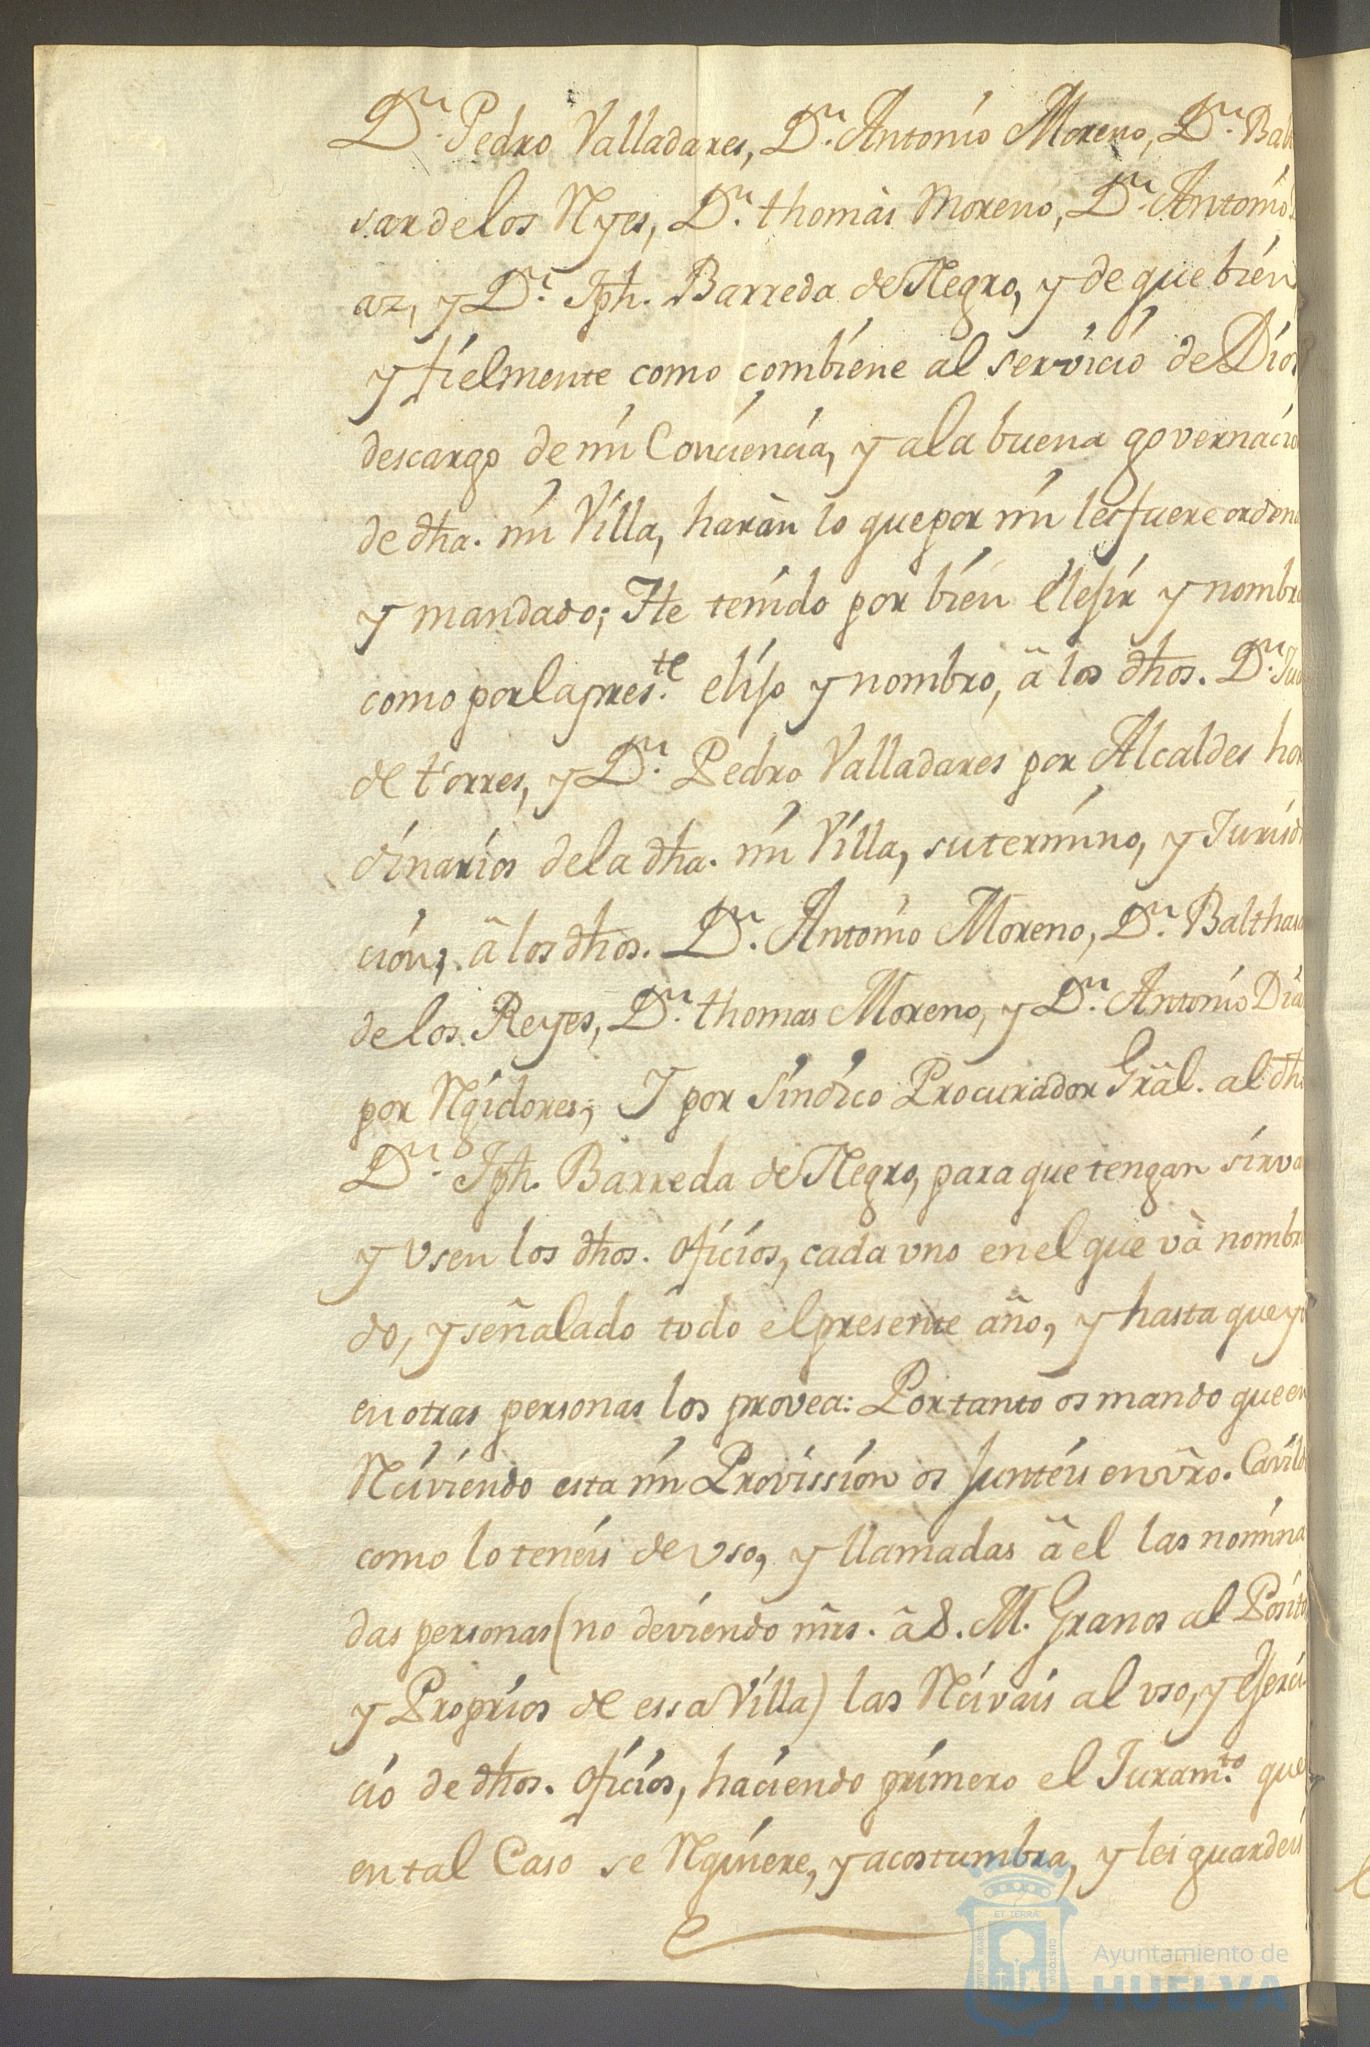 Dn. Pedro Valladares, Dn. Antonio Moreno, Dn. Balt
sar de los Ryes, Dn. thomàs Moreno, Dn. Antonio
az, y Dn. Jph. Barreda de Negro, y de que bien
y fielmente como combiene al servicio de Dios
descargo de mi Conciencia, y a la buena governacio
de dha. mi Villa, haràn lo que por mi les fuere ordena
y mandado; He tenido por bien elejir y nombra
como por la preste. elijo y nombro, â los dhos. Dn. Jua
de torres, y Dn. Pedro Valladares por Alcaldes hor
dinarios de la dha. mi Villa, su termino, y Jurisdi
cion; â los dhos. Dn. Antonio Moreno, Dn. Balthasa
de los Reyes, Dn. thomas Moreno, y Dn. Antonio Dia
por Rgidores; Y por Sindico Procurador Grâl. al dho
Dn. Jph. Barreda de Negro, para que tengan sirva
y Vsen los dhos. oficios, cada vno en el que và nombra
do, y señalado todo el presente año, y hasta que yo
en otras personas los provea: Por tanto os mando que en
Rciviendo esta mi Provission os Junteis en vrô. Cavild
como lo teneis de vso, y llamadas â el las nomina
das personas (no deviendo mrs. â S. M. Granos al Posito
y Proprios de essa Villa) las Rcivais al vso, y Ejerci
cio de dhos. oficios, haciendo primero el Juramto. que
en tal Caso se Rquiere, y acostumbra, y les guardeis
ET TERRÆ
PORTUS MARIS
CUSTODIA
Ayuntamiento de
HUELVA